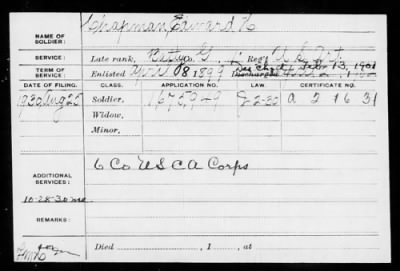 Chapman, Edward H
NAME OF SOLDIER:
SERVICE: Late rank, Btty Co. G, Reg't U.S.
TERM OF SERVICE: Enlisted April 8 1899 Discharged Feb 13, 1901
DATE OF FILING. CLASS. APPLICATION NO. LAW CERTIFICATE NO.
1930 Aug 25 Soldier, 1675949 J 2-30 a 2 16 31
Widow,
Minor,
ADDITIONAL SERVICES: 6 Co U S C A Corps
10-28-30
REMARKS:
Died , 1 , at